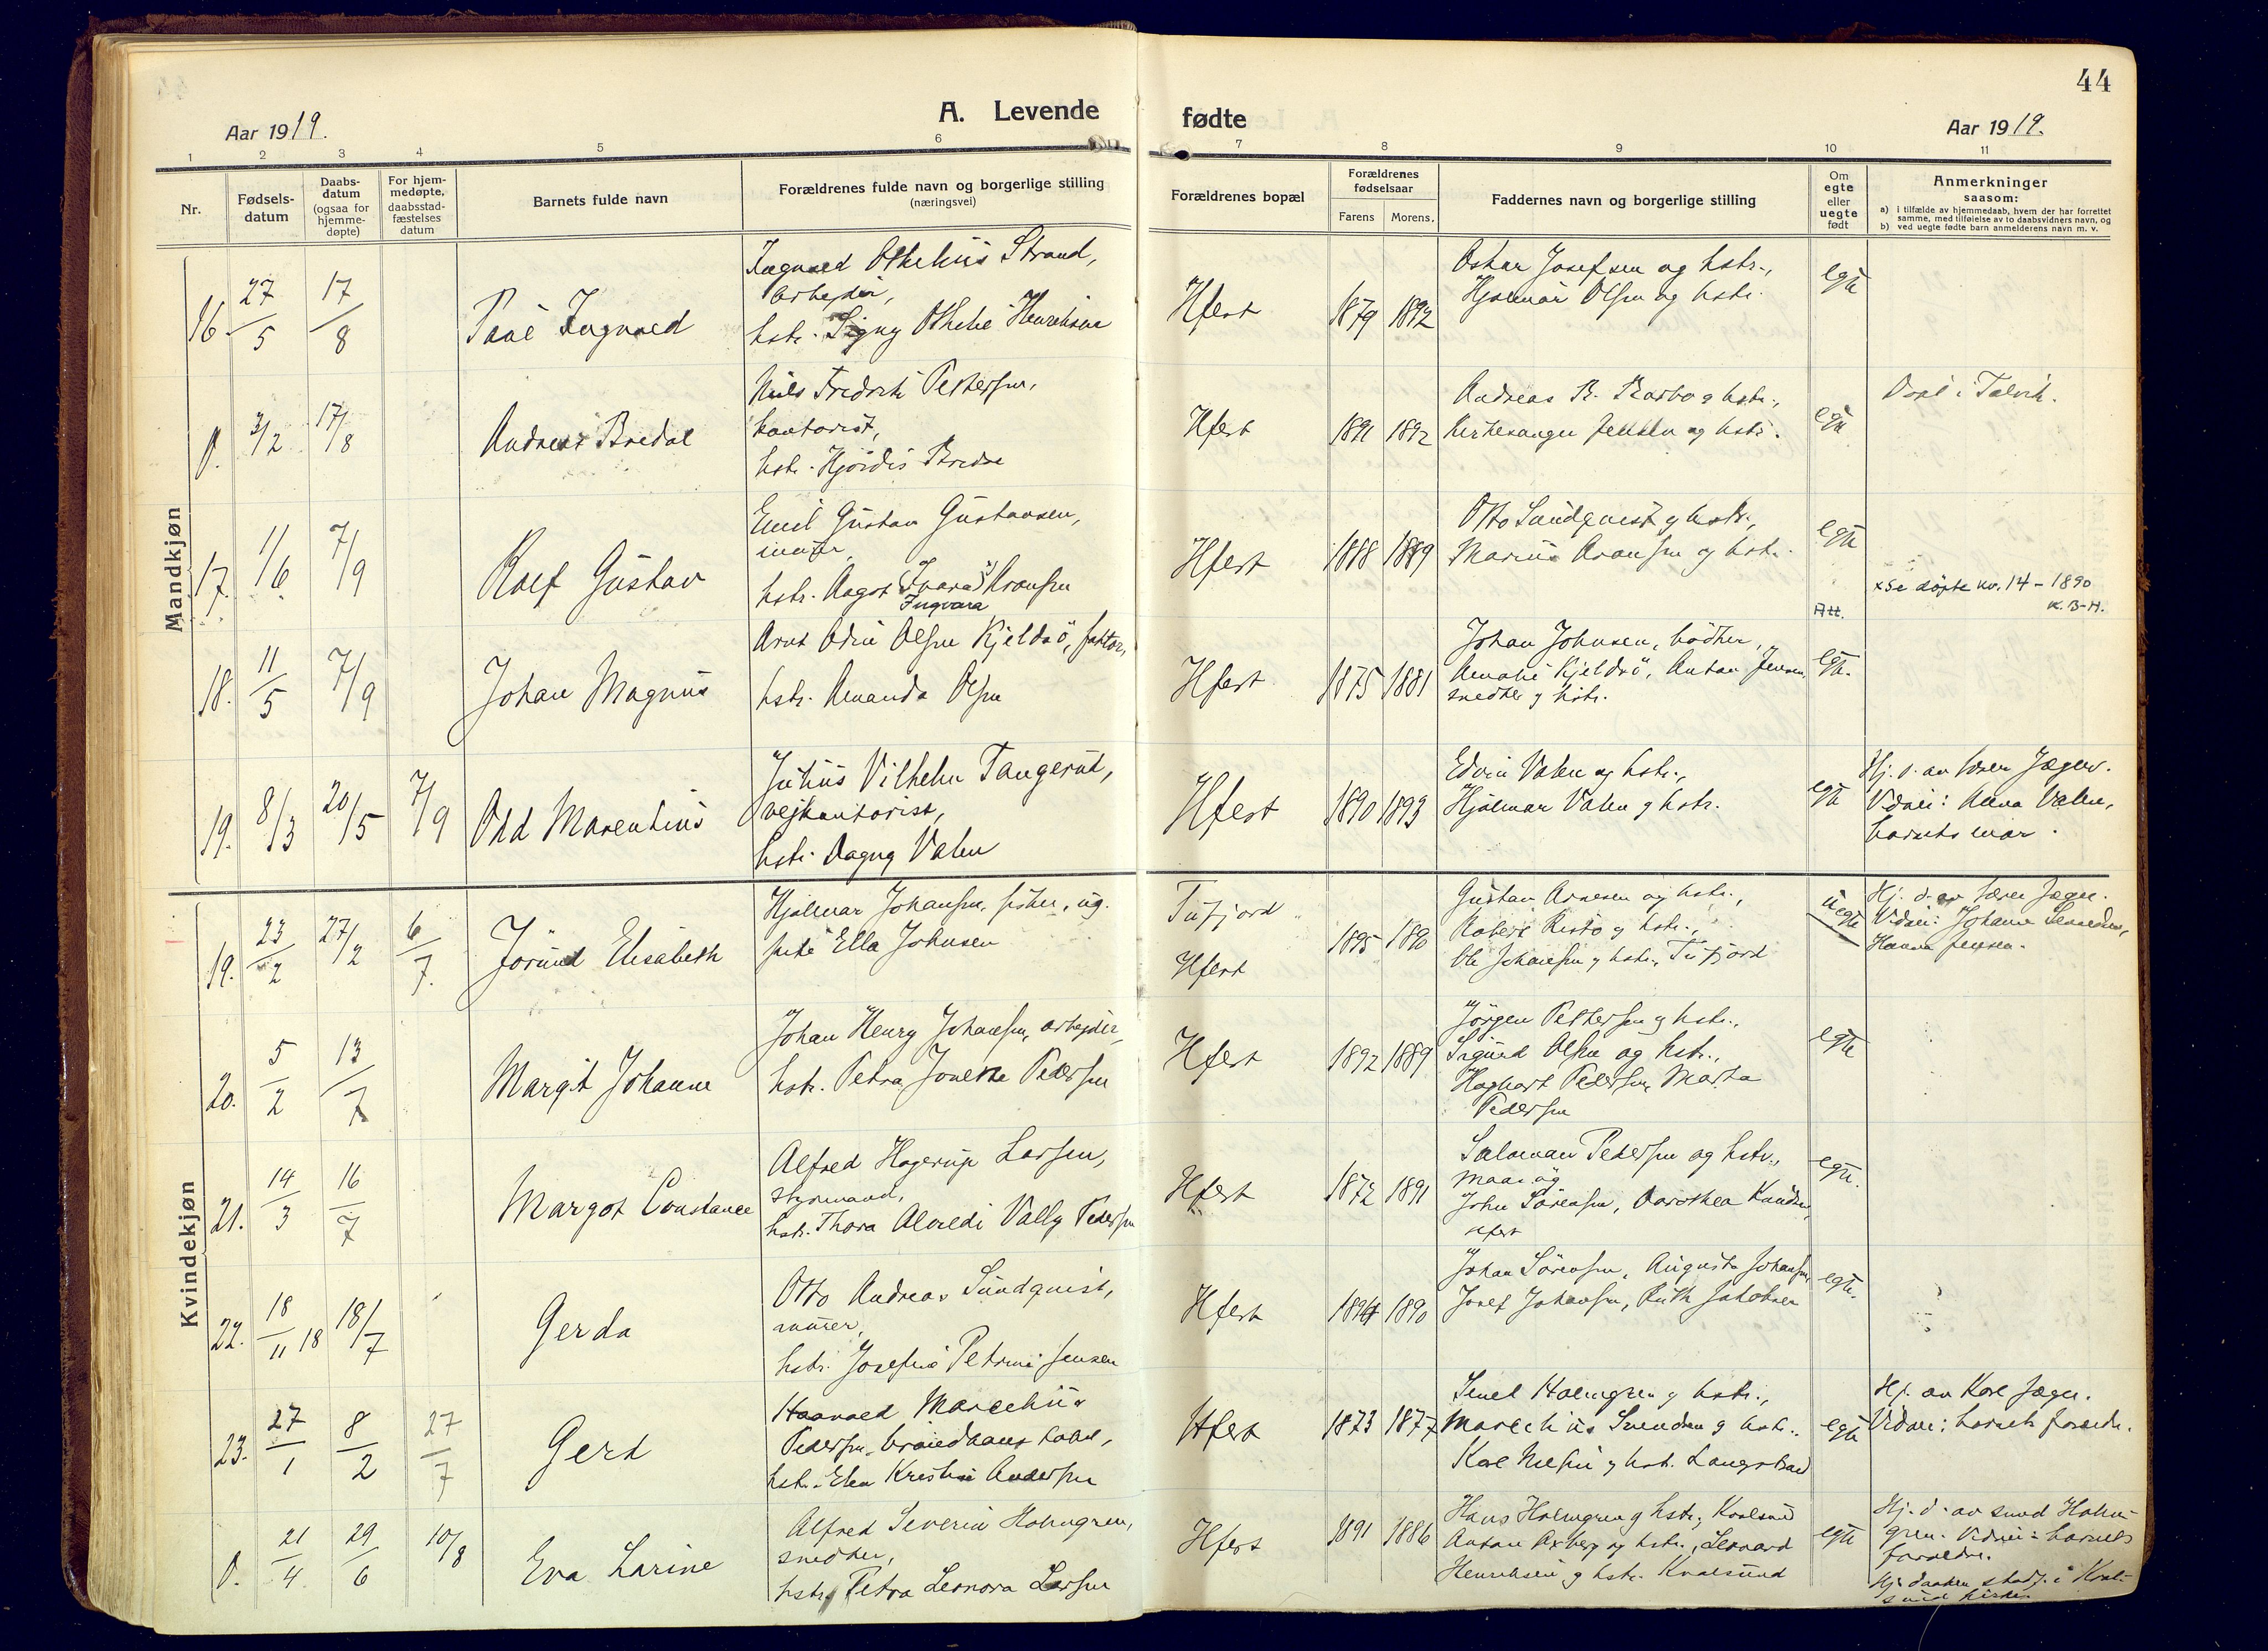 44
Aar 1919.
A. Levende
fødte
Aar 1919.
1 2 3 4 5 6 7 8 9 10 11
Nr.
Fødsels-
datum
Daabs-
datum
(ogsaa for
hjemme-
døpte)
For hjem-
medøpte,
daabsstad-
fæstelses
datum
Barnets fulde navn
Forældrenes fulde navn og borgerlige stilling
(næringsvei)
Forældrenes bopæl
Forældrenes
fødselsaar
Farens Morens.
Faddernes navn og borgerlige stilling
Om
egte
eller
uegte
født
Anmerkninger
saasom:
a) i tilfælde av hjemmedaab, hvem der har forrettet
samme, med tilføielse av to daabsvidners navn, og
b) ved uegte fødte barn anmelderens navn m. v.
Mandkjøn
16. 27/5 17/8
Ingvald Othelius Strand,
arbeider,
hstr. Signy Othelie Henriksen
Hfest 1879 1892
Oskar Josefsen og hstr.,
Hjalmar Olsen og hstr.
egte
0. 3/2 17/8
Andreas Bredal
Niels Fredrik Pettersen,
kontorist,
hstr. Hjördis
Hfest 1891 1892
Andreas B. og hstr.,
Kirkesanger Jensen og hstr.
egte
i Talvik.
17. 11/6 7/9
Rolf Gustav
Emil Gustav Gustavsen,
murer,
hstr. Aagot Ivara Aronsen
Ingvara
Hfest 1888 1889
Otto Sundqvist og hstr.,
Marius Aronsen og hstr.
egte
Att.
x Se döpte nr. 14 - 1890
K. B-H.
18. 11/5 7/9
Johan Magnus
Arnt Odin Olsen Kjeldsö, faktor,
hstr. Amanda Olsen
Hfest 1875 1881
Johan Johnsen, bödker,
Amalie Kjeldsö, Anton Jensen,
snedker og hstr.
egte.
19. 8/3 20/5 7/9
Odd Marentius
Julius Vilhelm Tangerud,
veikontorist,
hstr. Dagny Valen
Hfest 1890 1893
Edvin Valen og hstr.,
Hjalmar Valen og hstr.
egte
Hj. d. av lærer Jæger.
Vidner: Anna Valen,
barnets mor.
Kvindekjøn
19. 23/2 27/2 6/7
Jorund Elisabeth
Hjalmar Johansen, fisker, ug.
pike Ella Johnsen
Tufjord
Hfest
1895 1890
Gustav Arnesen og hstr.,
Robert Risto og hstr.,
Ole Johansen og hstr., Tufjord
uegte
Hj. d. av lærer Jæger.
Vidner: Johanne
Hanna Jensen.
20. 5/2 13/7
Margit Johanne
Johan Henry Johansen, arbeider,
hstr. Petra Jonette Pedersen
Hfest 1892 1889
Jörgen Pettersen og hstr.,
Sigurd Olsen og hstr.,
Hagbart Pedersen, Marta
Pedersen
egte
21. 14/3 16/7
Margot Constance
Alfred Hagerup Larsen,
styrmand,
hstr. Thora Alvildi Vally Pedersen
Hfest 1872 1891
Salomon Pedersen og hstr.,
Maasöy
John Sörensen, Dorothea Knudsen,
Hfest
egte.
22. 18/11 18 18/7
Gerda
Otto Andreas Sundquist,
murer,
hstr. Josefine Petrine Jensen
Hfest 1894 1890
Johan Sörensen, Augusta Johansen,
Josef Johansen, Ruth Jakobsen
egte.
23. 27/1 8/2 27/7
Gerd
Haavald Marcelius
Pedersen,
hstr. Elen Kristine Andersen
Hfest 1873 1877
Holmgren og hstr.,
Marelius Svendsen og hstr.,
Karl Nilsen og hstr. Langstrand
egte
Hj. av Karl Jæger.
Vidner: barnets foreldre.
0. 21/4 29/6 10/8
Eva Larine
Alfred Severin Holmgren,
snedker,
hstr. Petra Leonora Larsen
Hfest 1891 1886
Hans Holmgren og hstr., Kvalsund
Anton Axberg og hstr., Leonard
Henriksen og hstr. Kvalsund
egte
Hj. d. av Holm-
gren. Vidner: barnets
foreldre.
Hj. daaben stadf. i Kval-
sund kirke.